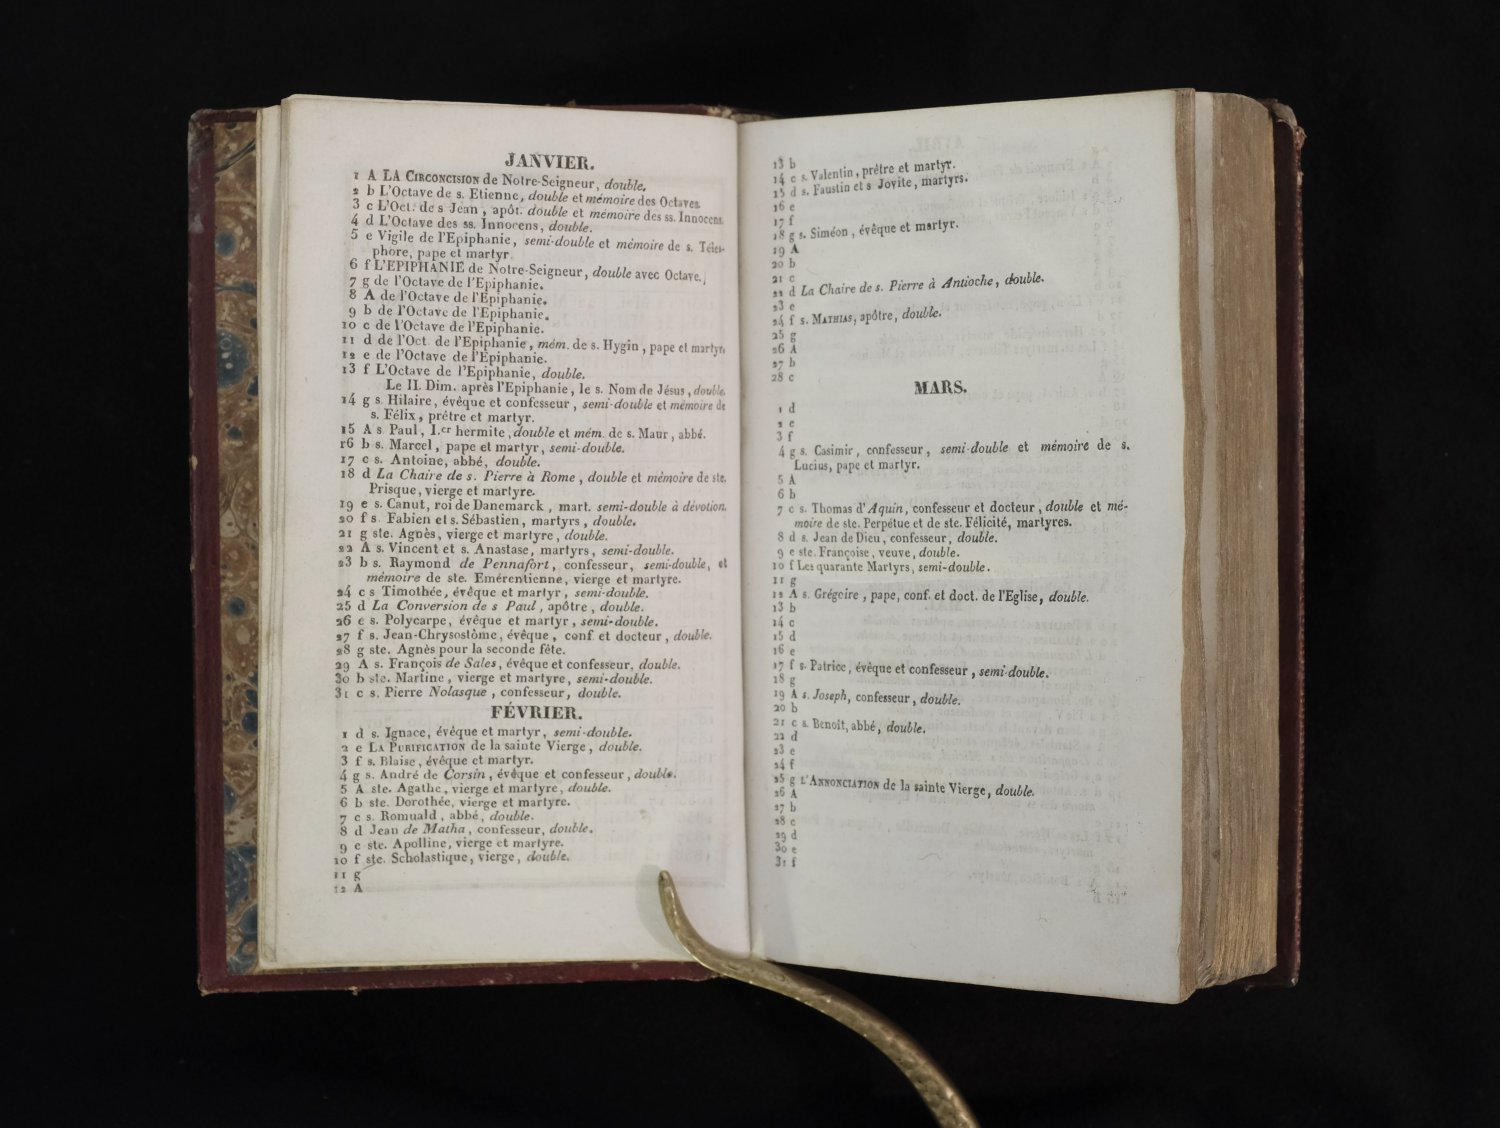 JANVIER.
1 A LA CIRCONCISION de Notre-Seigneur, double.
2 b L'Octave de s. Etienne, double et mémoire des Octaves.
3 c L'Oct. de s Jean, apôt. double et mémoire des ss. Innocens.
4 d L'Octave des ss. Innocens, double.
5 e Vigile de l'Epiphanie, semi-double et mémoire de s. Téles-
phore, pape et martyr
6 f L'EPIPHANIE de Notre-Seigneur, double avec Octave.
7 g de l'Octave de l'Epiphanie.
8 A de l'Octave de l'Epiphanie.
9 b de l'Octave de l'Epiphanie.
10 c de l'Octave de l'Epiphanie.
11 d de l'Oct. de l'Epiphanie, mém. de s. Hygin, pape et martyr.
12 e de l'Octave de l'Epiphanie.
13 f L'Octave de l'Epiphanie, double.
Le II. Dim. après l'Epiphanie, le s. Nom de Jésus, double.
14 g s. Hilaire, évêque et confesseur, semi-double et mémoire de
s. Félix, prêtre et martyr.
15 A s. Paul, I.er hermite, double et mém. de s. Maur, abbé.
16 b s. Marcel, pape et martyr, semi-double.
17 c s. Antoine, abbé, double.
18 d La Chaire de s. Pierre à Rome, double et mémoire de ste.
Prisque, vierge et martyre.
19 e s. Canut, roi de Danemarck, mart. semi-double à dévotion.
20 f s. Fabien et s. Sébastien, martyrs, double.
21 g ste. Agnès, vierge et martyre, double.
22 A s. Vincent et s. Anastase, martyrs, semi-double.
23 b s. Raymond de Pennafort, confesseur, semi-double, et
mémoire de ste. Emérentienne, vierge et martyre.
24 c s Timothée, évêque et martyr, semi-double.
25 d La Conversion de s Paul, apôtre, double.
26 e s. Polycarpe, évêque et martyr, semi-double.
27 f s. Jean-Chrysostôme, évêque, conf et docteur, double.
28 g ste. Agnès pour la seconde fête.
29 A s. François de Sales, évêque et confesseur, double.
30 b ste. Martine, vierge et martyre, semi-double.
31 c s. Pierre Nolasque, confesseur, double.
FÉVRIER.
1 d s. Ignace, évêque et martyr, semi-double.
2 e LA PURIFICATION de la sainte Vierge, double.
3 f s. Blaise, évêque et martyr.
4 g s. André de Corsin, évêque et confesseur, double.
5 A ste. Agathe, vierge et martyre, double.
6 b ste. Dorothée, vierge et martyre.
7 c s. Romuald, abbé, double.
8 d Jean de Matha, confesseur, double.
9 e ste. Apolline, vierge et martyre.
10 f ste. Scholastique, vierge, double.
11 g
12 A
13 b
14 c s. Valentin, prêtre et martyr.
15 d s. Faustin et s Jovite, martyrs.
16 e
17 f
18 g s. Siméon, évêque et martyr.
19 A
20 b
21 c
22 d La Chaire de s. Pierre à Antioche, double.
23 e
24 f s. MATHIAS, apôtre, double.
25 g
26 A
27 b
28 c
MARS.
1 d
2 e
3 f
4 g s. Casimir, confesseur, semi-double et mémoire de s.
Lucius, pape et martyr.
5 A
6 b
7 c s. Thomas d'Aquin, confesseur et docteur, double et mé-
moire de ste. Perpétue et de ste. Félicité, martyres.
8 d s. Jean de Dieu, confesseur, double.
9 e ste. Françoise, veuve, double.
10 f Les quarante Martyrs, semi-double.
11 g
12 A s. Grégoire, pape, conf. et doct. de l'Eglise, double.
13 b
14 c
15 d
16 e
17 f s. Patrice, évêque et confesseur, semi-double.
18 g
19 A s. Joseph, confesseur, double.
20 b
21 c s. Benoît, abbé, double.
22 d
23 e
24 f
25 g L'ANNONCIATION de la sainte Vierge, double.
26 A
27 b
28 c
29 d
30 e
31 f